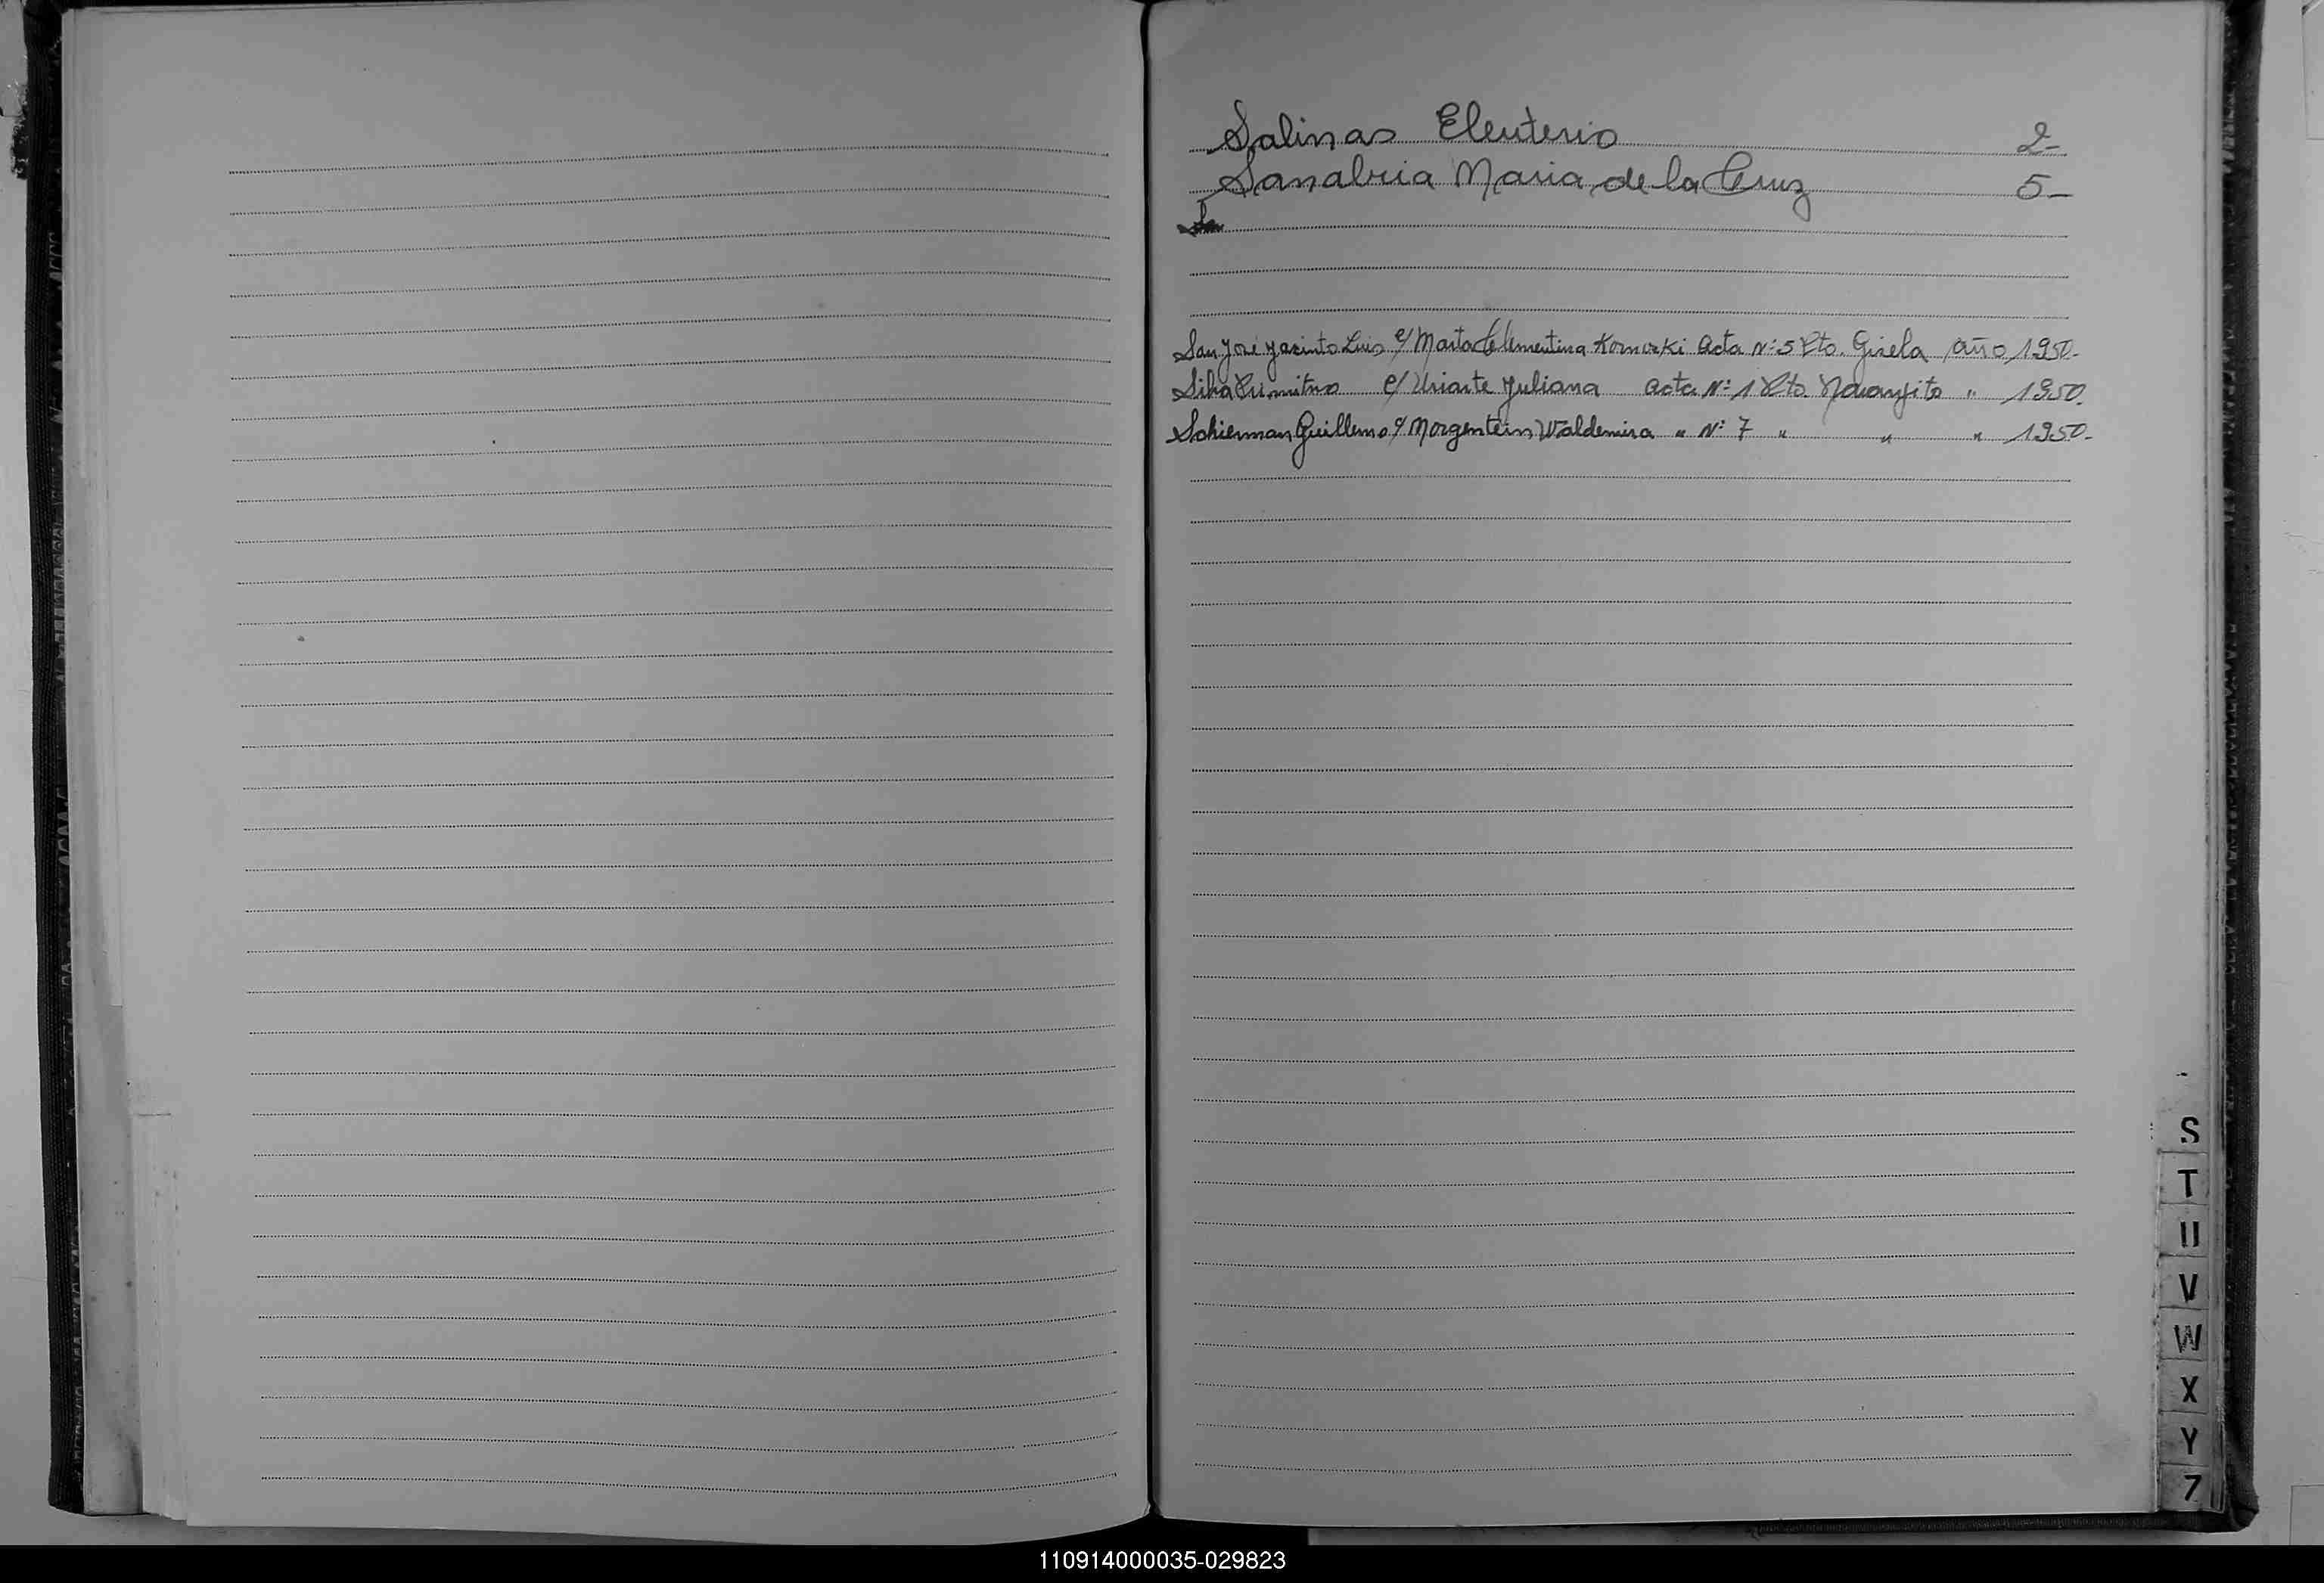 Salinas Eleuterio 2-
Sanabria Maria de la Cruz 5-
San José Jacinto Luis c/ Marta Clementina Kornuski Acta Nº 5 Pto. Gisela año 1950.-
Silva Primitivo c/ Uriarte Juliana Acta Nº 1 Pto. Naranjito " 1950.
Schierman Guillermo c/ Morgenstein Waldemira " Nº 7 " " " 1950.-
S
T
U
V
W
X
Y
Z
110914000035-029823